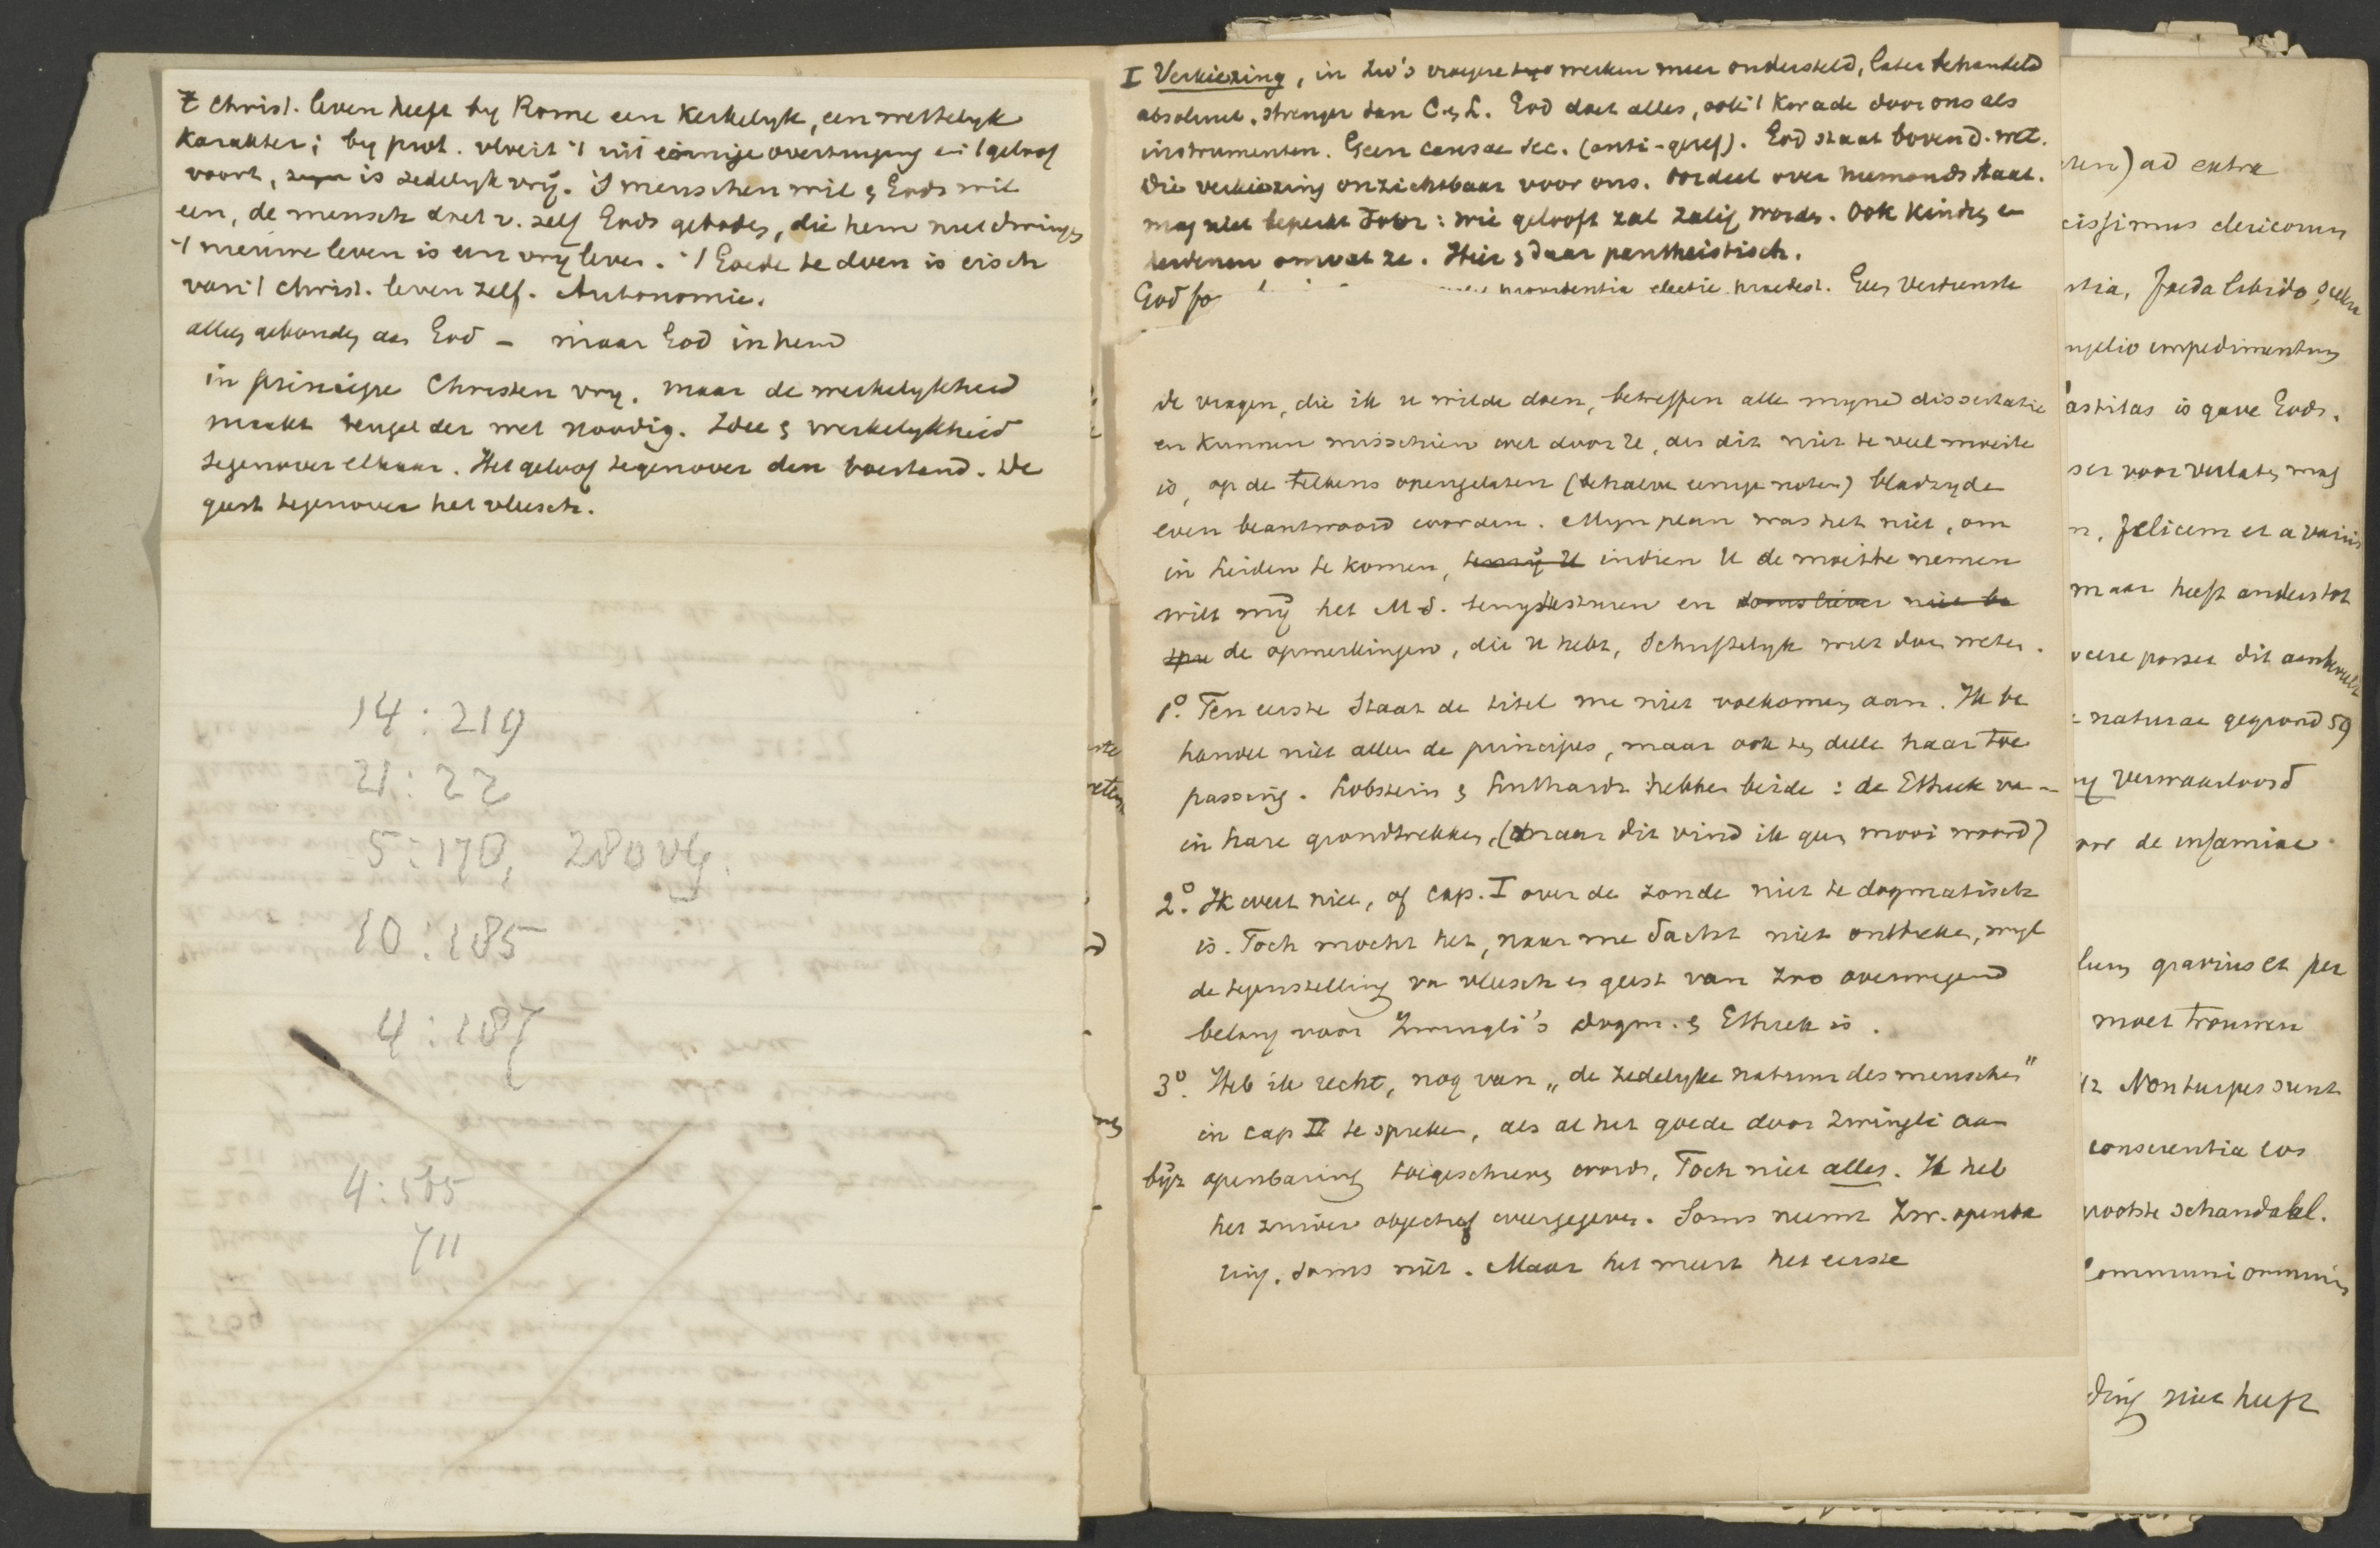 't Christ. leven heeft by Rome een Kerkelyk, een wettelyk
Karakter; by prot. vloeit 't uit innige overtuiging en 't geloof
voort, is zedelyk vrij. 's menschen wil & Gods wil
een, de mensch doet v. zelf Gods geboden, die hem niet dwingen
't nieuwe leven is een vry leven. 't Goede te doen is eisch
van 't Christ. leven zelf. Autonomie.
alles gebonden aan God – maar God in hem
in principe Christen vry. maar de werkelykheid
maakt teugel der wet noodig. Idee & werkelykheid
tegenover elkaar. Het geloof tegenover den toestand. De
geest tegenover het vleesch.
14:219
21:22
5:170, 280 vlg.
10:185
4:187
4:585
711
I Verkiezing, in Zw's vroegere werken meer ondersteld, later behandeld
absoluut, strenger dan C. & L. God doet alles, ook 't kwade door ons als
instrumenten. Geen causae sec. (anti-geref). God staat boven d. wet.
Die verkiezing onzichtbaar voor ons. oordeel over niemands staat.
mag niet beperkt door: wie gelooft zal zalig worden. Ook kinderen en
heidenen omvat ze. Hier & daar pantheistisch.
God providentia electie praedest. Geen verdienste
de vragen, die ik u wilde doen, betreffen alle myne dissertatie
en kunnen misschien wel door U, als dit niet te veel moeite
is, op de telkens opengelaten (behalve eenige noten) bladzyde
even beantwoord worden. Myn plan was het niet, om
in Leiden te komen, terwij U indien U de moeite nemen
wilt mij het M.S. terug te sturen en
de opmerkingen, die U hebt, Schriftelyk wilt doen weten.
1º. Ten eerste Staat de titel me niet volkomen aan. Ik be
handel niet alleen de principes, maar ook ten deele haar toe
passing. Lobstein & Luthardt hebben beide: de Ethiek van
in hare grondtrekken, (maar dit vind ik geen mooi woord)
2º. Ik weet niet, of Cap. I over de zonde niet te dogmatisch
is. Toch mocht het, naar me dacht niet ontbreken, wyl
de tegenstelling van vleesch en geest van zoo overwegend
belang voor Zwingli's dogm. & Ethiek is.
3º. Heb ik recht, nog van „de zedelyke natuur des menschen"
in Cap II te spreken, als al het goede door Zwingli aan
bijz openbaring toegeschreven wordt. Toch niet alles. Ik heb
het zuiver objectief weergegeven. Soms neemt Zw. openba
ring, soms niet. Maar het meest het eerste
ad extra
cissimus clericorum
foeda libido
ngelio impedimentum
castitas is gave Gods.
ser voor verlaten mag
n, felicem et a variis
maar heeft anders tot
ocere posset dit
naturae gegrond 59
verwaarloosd
oor de infamiae
lum gravius et per
moet trouwen
Non turpes sunt
conscientia eos
rootste schandaal.
Communi omnium
ding niet heeft